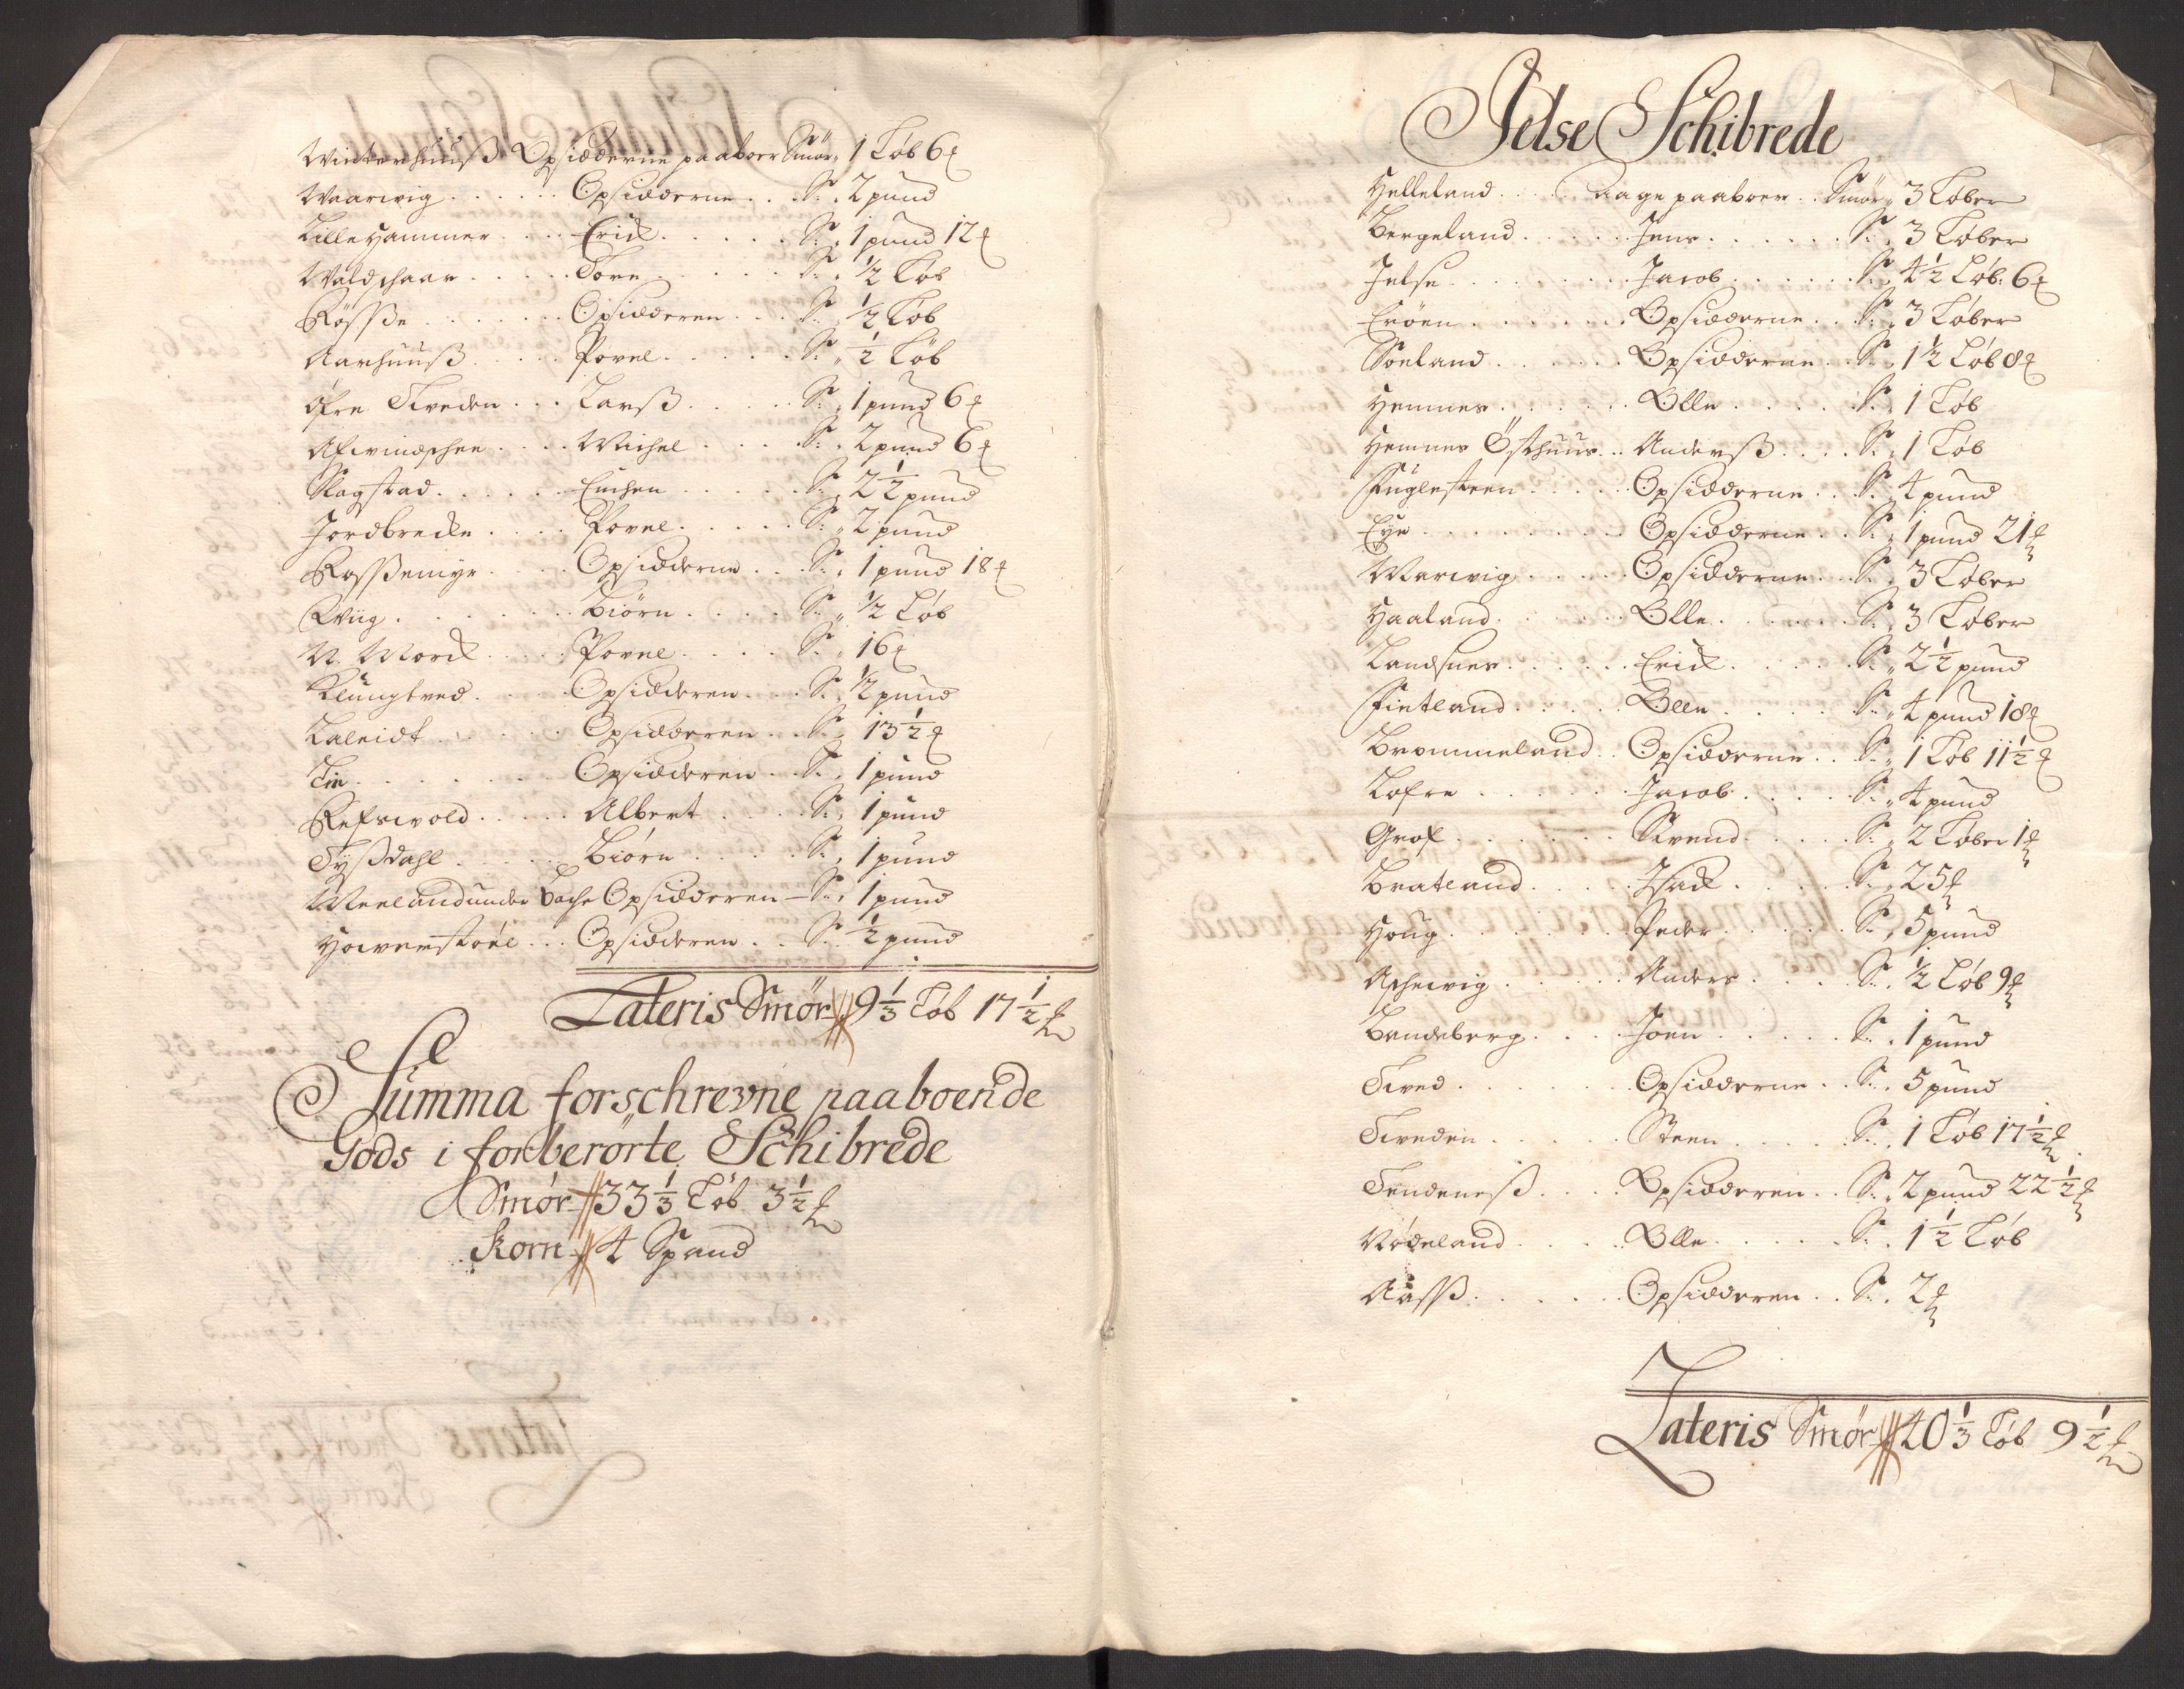 Winterhuuß Opsidderne paaboer Smør 1 Løb 6 ℔
Waarwig . . . . . . Opsidderne . . S: 2 pund
Lille Hammer . . . . Erick . . . . . S: 1 pund 12 ℔
Waldschaar . . . . . Tore . . . . . S: ½ Løb
Røsße . . . . . . . Opsidderen . . . S: ½ Løb
Aarhuuß . . . . . Povel . . . . . S: ½ Løb
Øfre Tveden . . . Larß . . . . . S: 1 pund 6 ℔
Afwindschen . . . . Michel . . . . S: 2 pund 6 ℔
Slagstad . . . . . . . . . . . S: 2½ pund
Jordbrecke . . . . Povel . . . . . S: 2 pund
Rosßemyr . . . . Opsidderne . . . S: 1 pund 18 ℔
Wiig . . . . . . . Biørn . . . . . S: ½ Løb
N. Morck . . . . . Povel . . . . . S: 16 ℔
Klungtved . . . . Opsidderen . . . S: ½ pund
Laleidt . . . . . . Opsidderen . . . S: 13½ ℔
Lie . . . . . . . Opsidderen . . S: 1 pund
Refswold . . . . . Albert . . . . S: 1 pund
Tyßdahl . . . . . Biørn . . . . . S: 1 pund
Meeland under Bache Opsidderen — S: 1 pund
Howerstøel . . . Opsidderen . . S: ½ pund
Lateris Smør 9⅓ Løb 17½ ℔
Summa forschrevne paaboende
Gods i forberørte Schibrede
Smør 33⅓ Løb 3½ ℔
Korn 4 Spand
Jelse Schibrede
Helleland . . . . Aage paaboer . . Smør 3 Løber
Bergeland . . . . . Jens . . . . . . S: 3 Løber
Jelse . . . . . . . . Jacob . . . . . . S: 4½ Løb: 6 ℔
Erøen . . . . . . . Opsidderne . . S: 3 Løber
Soeland . . . . . . Opsidderne . . S: 1½ Løb 8 ℔
Hemnes . . . . . . Olle . . . . . S: 1 Løb
Hemnes Østhuus . . Anderß . . . . S: 1 Løb
Fuglesteen . . . . . Opsidderne . . S: 4 pund
Eye . . . . . . . . Opsidderne . . S: 1 pund 21 ℔
Marwig . . . . . Opsidderne . . S: 3 Løber
Haaland . . . . . . Olle . . . . . . S: 3 Løber
Landsnes . . . . . . Erick . . . . . S: 2½ pund
Fietland . . . . . Olle . . . . . S: 4 pund 18 ℔
Brommeland . . Opsidderne . . S: 1 Løb 11½ ℔
Lofre . . . . . . Jacob . . . . . S: 4 pund
Grof . . . . . . . Svend . . . . . S: 2 Løber 1 ℔
Bratland . . . . . Isack . . . . . S: 25 ℔
Houg . . . . . . . Peder . . . . . S: 5 pund
Aschewig . . . . . Anders . . . . S: ½ Løb 9 ℔
Bandeberg . . . . Joen . . . . . . S: 1 pund
Tved . . . . . . . Opsidderne . . S: 5 pund
Tveden . . . . . . Steen . . . . . S: 1 Løb 17½ ℔
Tendeneß . . . . Opsidderen . . S: 2 pund 22½ ℔
Nødeland . . . . . Olle . . . . . . S: 1½ Løb
Aasß . . . . . . Opsidderen . . S: 2 ℔
Lateris Smør 40⅓ Løb 9½ ℔